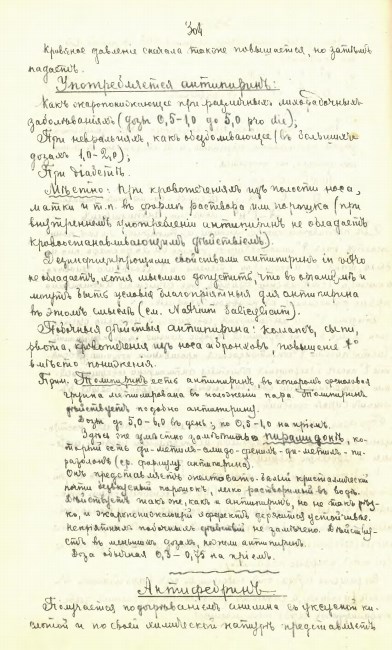 304
Кровяное давленіе сначала также повышается, но затѣмъ
падаетъ.
Употребляется антипиринъ:
Какъ жаропонижающее при различныхъ лихорадочныхъ
заболѣваніяхъ (дозы 0,5-1,0 до 5,0 pro die);
При невральгіяхъ, какъ обезболивающее (въ большихъ
дозахъ 1,0-2,0);
При діабетѣ.
Мѣстно: При кровотеченіяхъ изъ полости носа,
матки и т.п. въ формѣ раствора или порошка (при
внутреннемъ употребленіи антипиринъ не обладаетъ
кровоостанавливающимъ дѣйствіемъ).
Дезинфицирующими свойствами антипиринъ in vitro
не обладаетъ, хотя мыслимо допустить, что въ организмѣ и
могутъ быть условія благопріятныя для антипирина
въ этомъ смыслѣ (см. Natrium Salicylicum).
Побочныя дѣйствія антипирина: колапсъ, сыпи,
рвота, кровотеченія изъ носа и бронховъ, повышеніе t°
вмѣсто пониженія.
Прим. Толипиринъ есть антипиринъ, въ которомъ фениловая
группа метилирована въ положеніи пара. Толипиринъ
дѣйствуетъ подобно антипирину.
Дозы до 5,0-6,0 въ день; по 0,5-1,0 на пріемъ.
Здѣсь же умѣстно замѣтить о пирамидонѣ, ко-
торый есть ди-метилъ-амидо-фенилъ-ди-метилъ-пи-
разолонъ (ср. формулу антипирина).
Онъ представляетъ желтовато-бѣлый кристаллическій
почти безвкусный порошокъ, легко растворимый въ водѣ.
Дѣйствуетъ такъ же, какъ и антипиринъ, но не такъ рѣз-
ко, и жаропонижающій эффектъ держится устойчивѣе.
Непріятныхъ побочныхъ дѣйствій не замѣчено. Дѣйству-
етъ въ меньшихъ дозахъ, нежели антипиринъ.
Доза обычная 0,3-0,75 на пріемъ.
Антифебринъ
Получается подогрѣваніемъ анилина съ уксусной ки-
слотой и по своей химической натурѣ представляетъ